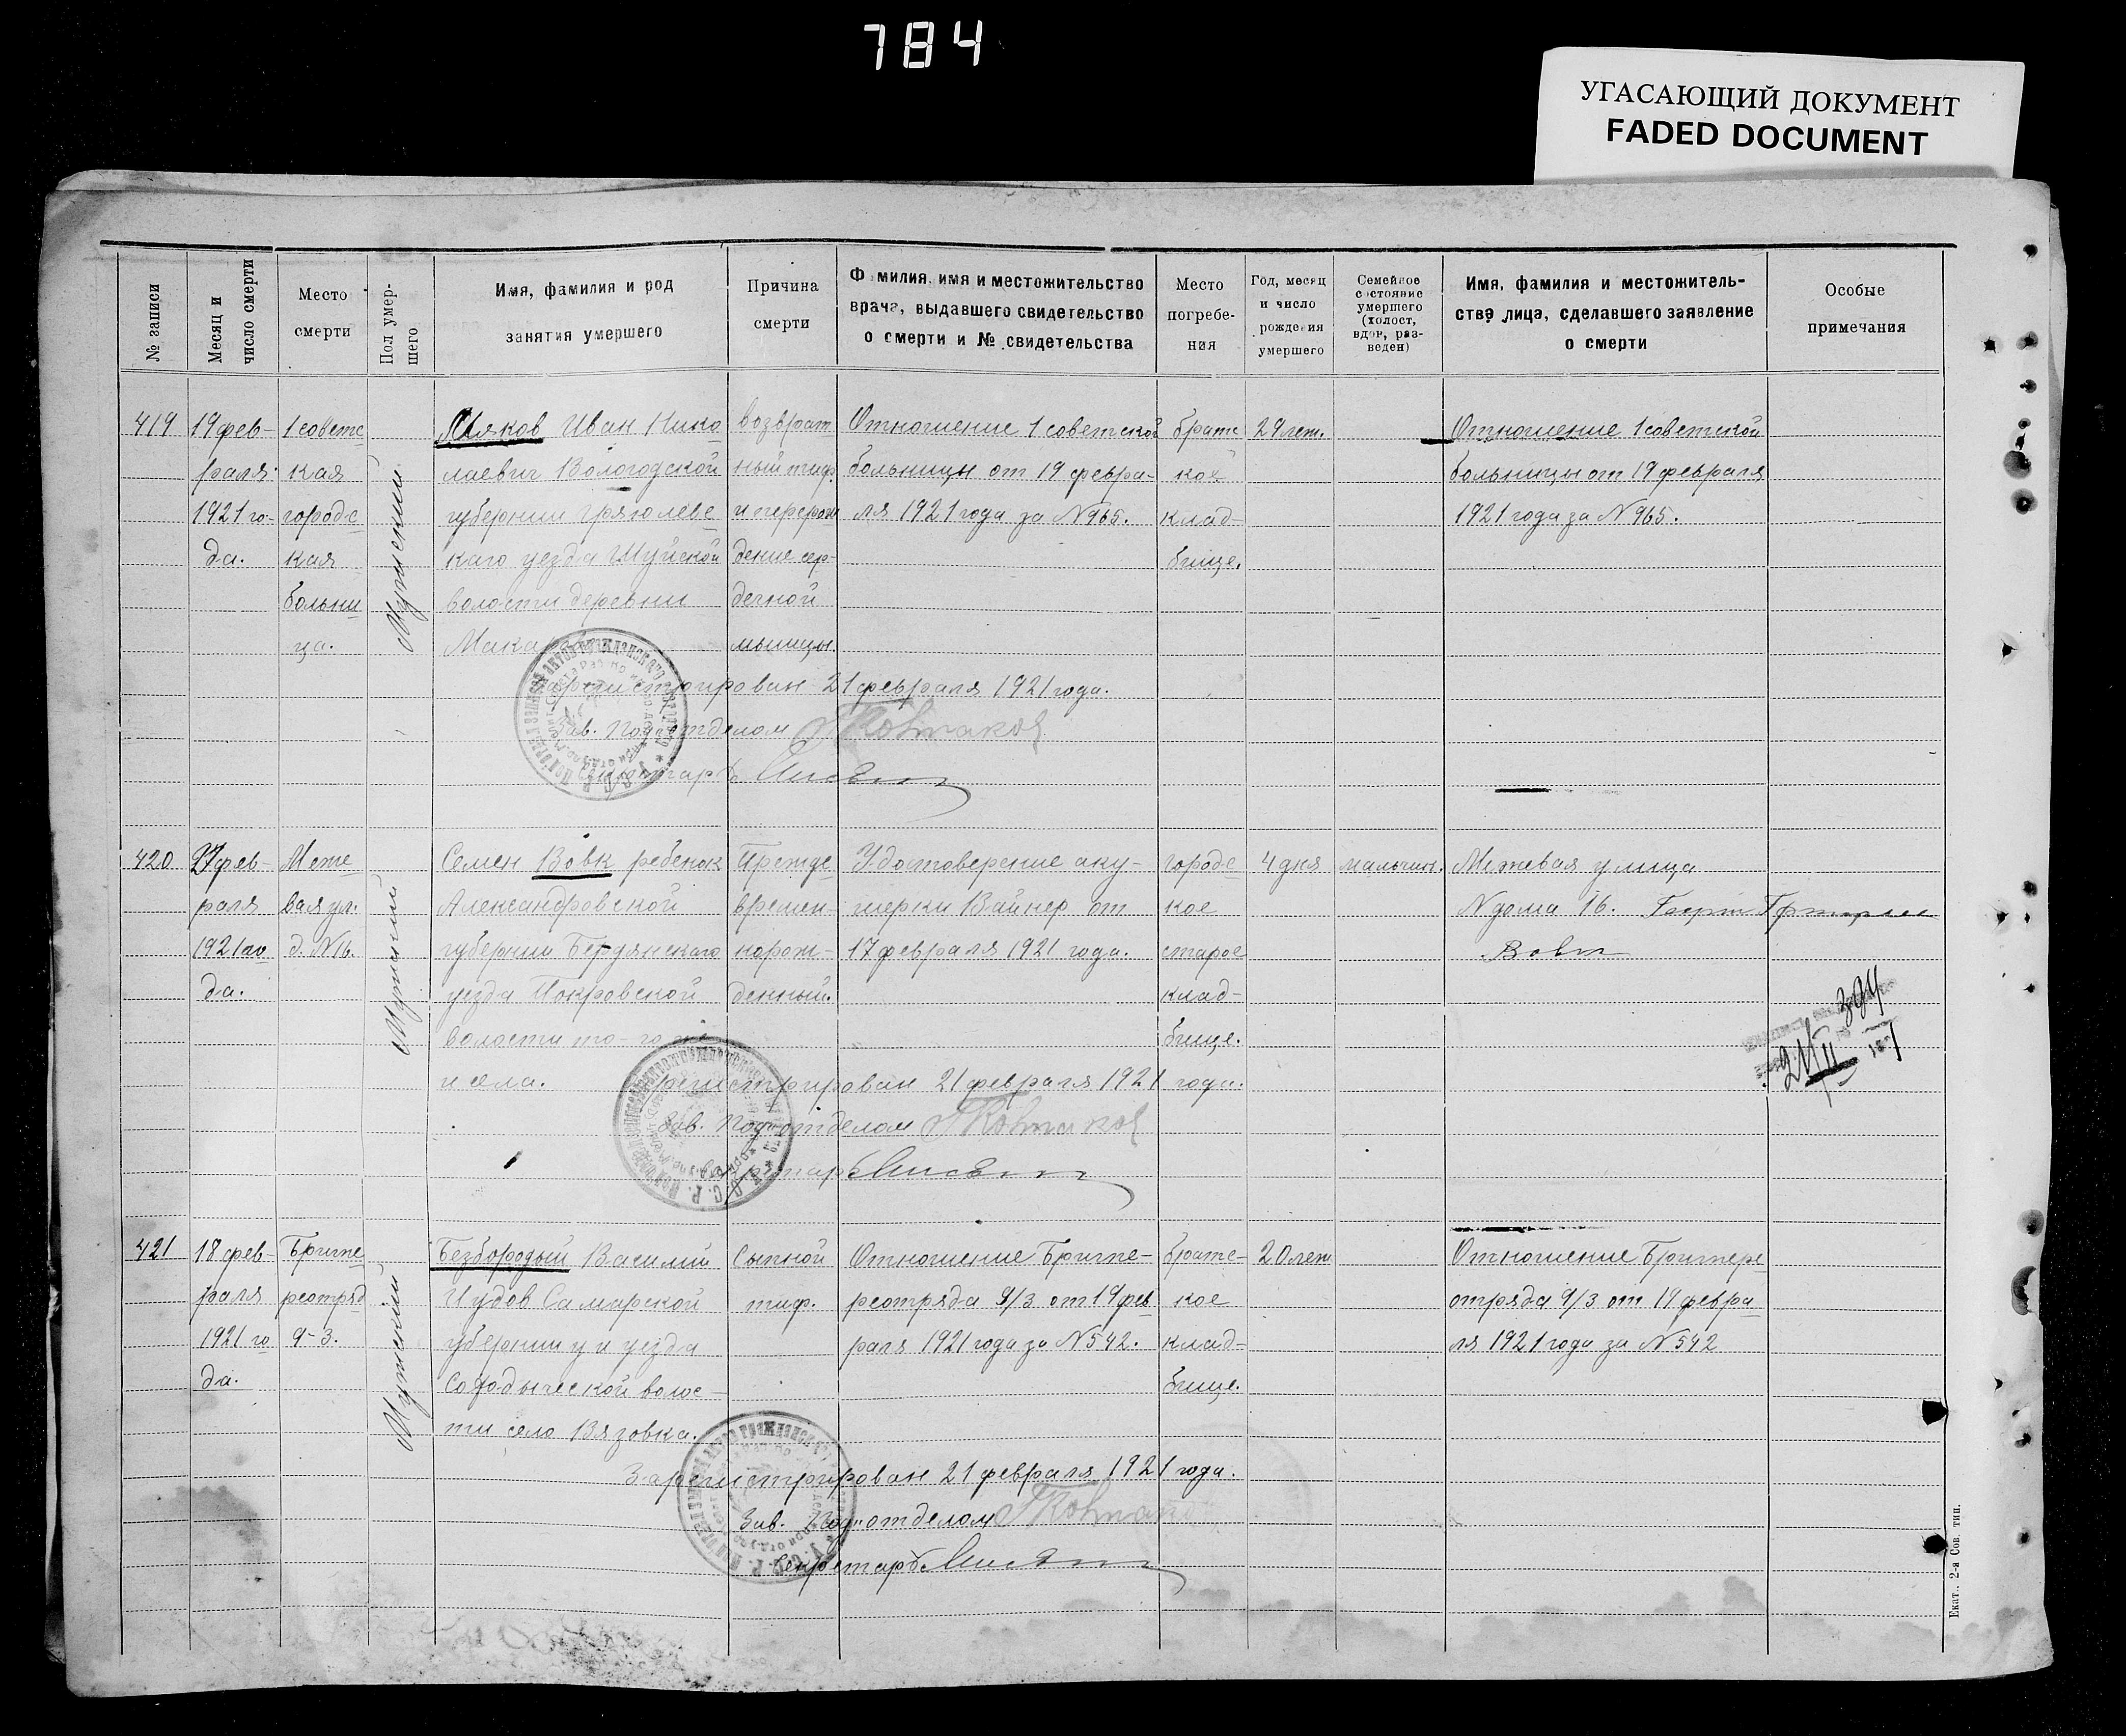 784
УГАСАЮЩИЙ ДОКУМЕНТ
FADED DOCUMENT
№ записи
Месяц и число смерти
Место смерти
Пол умер-
шего
Имя, фамилия и род
занятия умершего
Причина
смерти
Фамилия, имя и местожительство
врача, выдавшего свидетельство
о смерти и № свидетельства
Место
погребе-
ния
Год, месяц
и число
рождения
умершего
Семейное
состояние
умершего
(холост,
вдов, раз-
веден)
Имя, фамилия и местожитель-
ство лица, сделавшего заявление
о смерти
Особые
примечания
419
19 фев-
раля
1921 го-
да.
1 советс
кая
городс
кая
больни
ца.
Мужской
Иван Нико
лаевич Вологодской
губернии Грязолеве
каго уезда Шуйской
волости деревни
возврат
ный тиф.
и перерож
дение сер-
дечной
мышцы.
Отношение 1 советской
больницы от 19 февра-
ля 1921 года за N 965.
братс
кое
клад-
бище.
29 лет.
Отношение 1 советской
больницы от 19 февраля
1921 года за N 965.
21 февраля 1921 года.
Зав. Подотделом
420
фев-
раля
1921 го
да.
Меже
вая ул.
д. N 16.
Мужской
Семен Вовк ребенок
Александровской
губернии Бердянскаго
уезда Покровской
волости то-го же
села.
Прежде
времен-
норож-
денный.
Удостоверение аку-
шерки Вайнер от
17 февраля 1921 года.
городс
кое
старое
клад-
бище.
4 дня
мальчик.
Межевая улица
N дома 16.
Вовк
21 февраля 1921 года.
Зав. Подотделом
421
18 фев-
раля
1921 го
да.
Бригпе
реотряд
9-3.
Мужской
Безбородый Василий
Иудов Самарской
губернии и уезда
волос-
ти село Вязовка.
Сыпной
тиф.
Отношение Бригпе-
реотряда 9/3 от 19 фев
раля 1921 года за N 542.
братс-
кое
клад-
бище.
20 лет
Отношение Бригпере
отряда 9/3 от 19 февра
ля 1921 года за N 542
Зарегистрирован 21 февраля 1921 года.
Зав. Подотделом
Секретарь
Екат. 2-я Сов. тип.